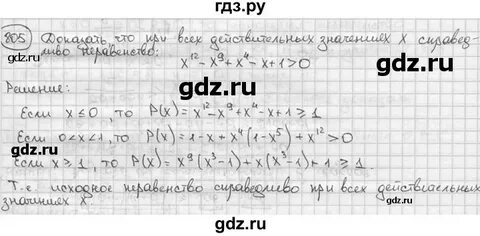 гдз.ру
805 Доказать, что при всех действительных значениях x справед-
ливо неравенство:
x¹² - x⁹ + x⁴ - x + 1 > 0
gdz.ru
gdz.ru
Решение:
Если x ≤ 0, то P(x) = x¹² - x⁹ + x⁴ - x + 1 ≥ 1
Если 0 < x < 1, то P(x) = 1 - x + x⁴(1 - x⁵) + x¹² > 0
gdz.ru
gdz.ru
Если x ≥ 1, то P(x) = x⁹(x³ - 1) + x(x³ - 1) + 1 ≥ 1.
Т.е. исходное неравенство справедливо при всех действительных
значениях x.
gdz.ru
gdz.ru